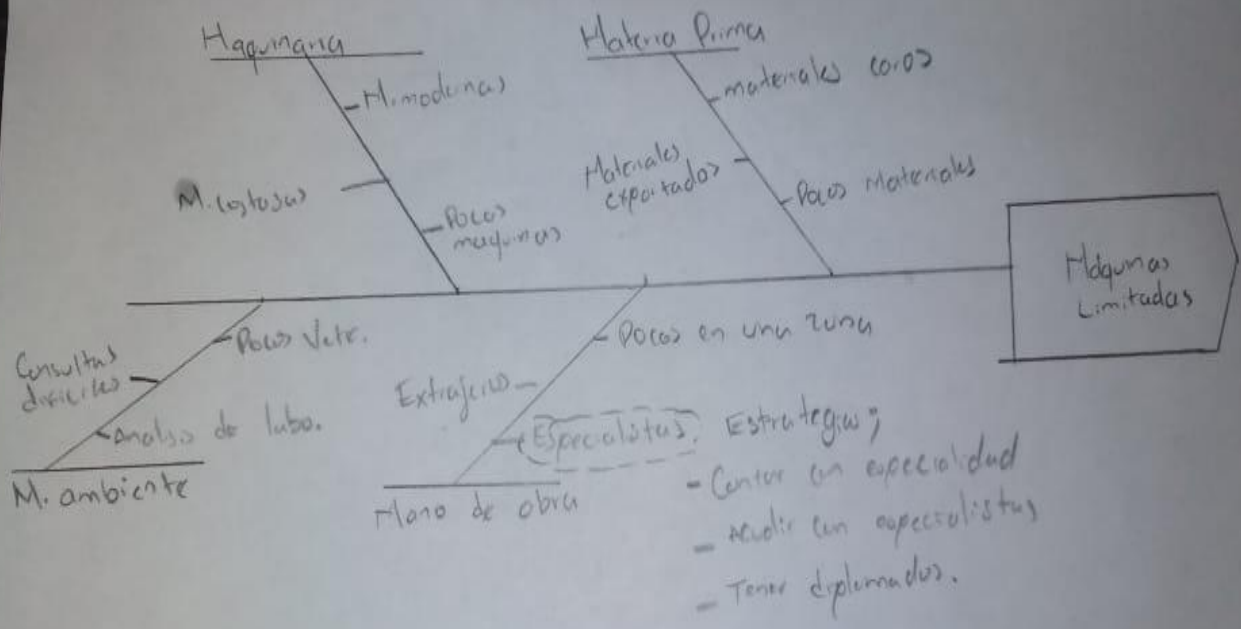 Maquinaria
M. modernas
M. costosas
Pocas
maquinas
Materia Prima
materiales caros
Materiales
exportados
Pocos Materiales
Máquinas
Limitadas
Pocos Vete.
Consultas
dificiles
Analisis de labo.
M. ambiente
Pocos en una zona
Extrajeros
Especialistas.
Mano de obra
Estrategias;
- Contar con especialidad
- Acudir con especialistas
- Tener diplomados.